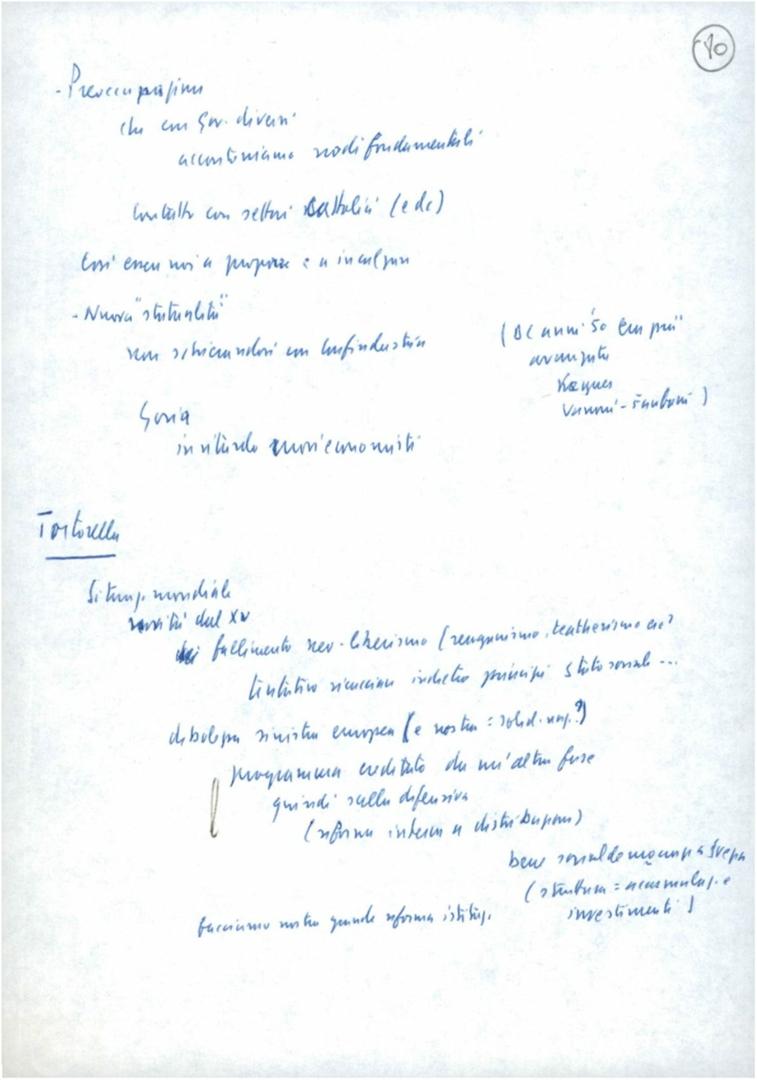 10
- Preoccupazione
che con gov. diversi
accantoniamo nodi fondamentali
contatto con settori cattolici (e dc)
Così essere noi a proporre e a incalzare
- Nuova "statualità"
non schierandosi con confindustria
(DC anni '50 era più
avanzata
Keynes
Vanoni - )
Goria
in ritardo economisti
Tortorella
Situaz. mondiale
novità dal XV
fallimento neo-liberismo (reaganismo, teatherismo ecc?
tentativo ricacciare indietro principi stato sociale ...
debolezza sinistra europea (e nostra = solid. naz.?)
programma ereditato da un'altra fase
quindi sulla difensiva
(riforma interna a distribuzione)
bene socialdemocrazia Svezia
(struttura = accumulaz. e
investimenti)
facciamo nostra grande riforma istituz.